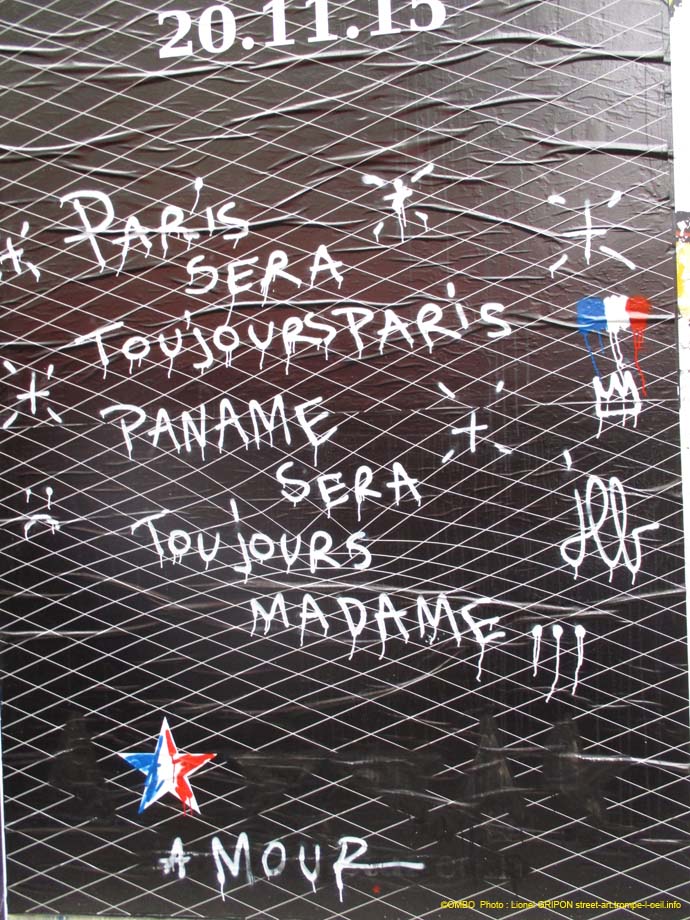 20.11.15
PARiS
SERA
TOUjOURS PARiS
PANAME
SERA
TOUjOURS
MADAME !!!
AMOUR
©OMBO Photo : Lionel GRIPON street-art.trompe-l-oeil.info